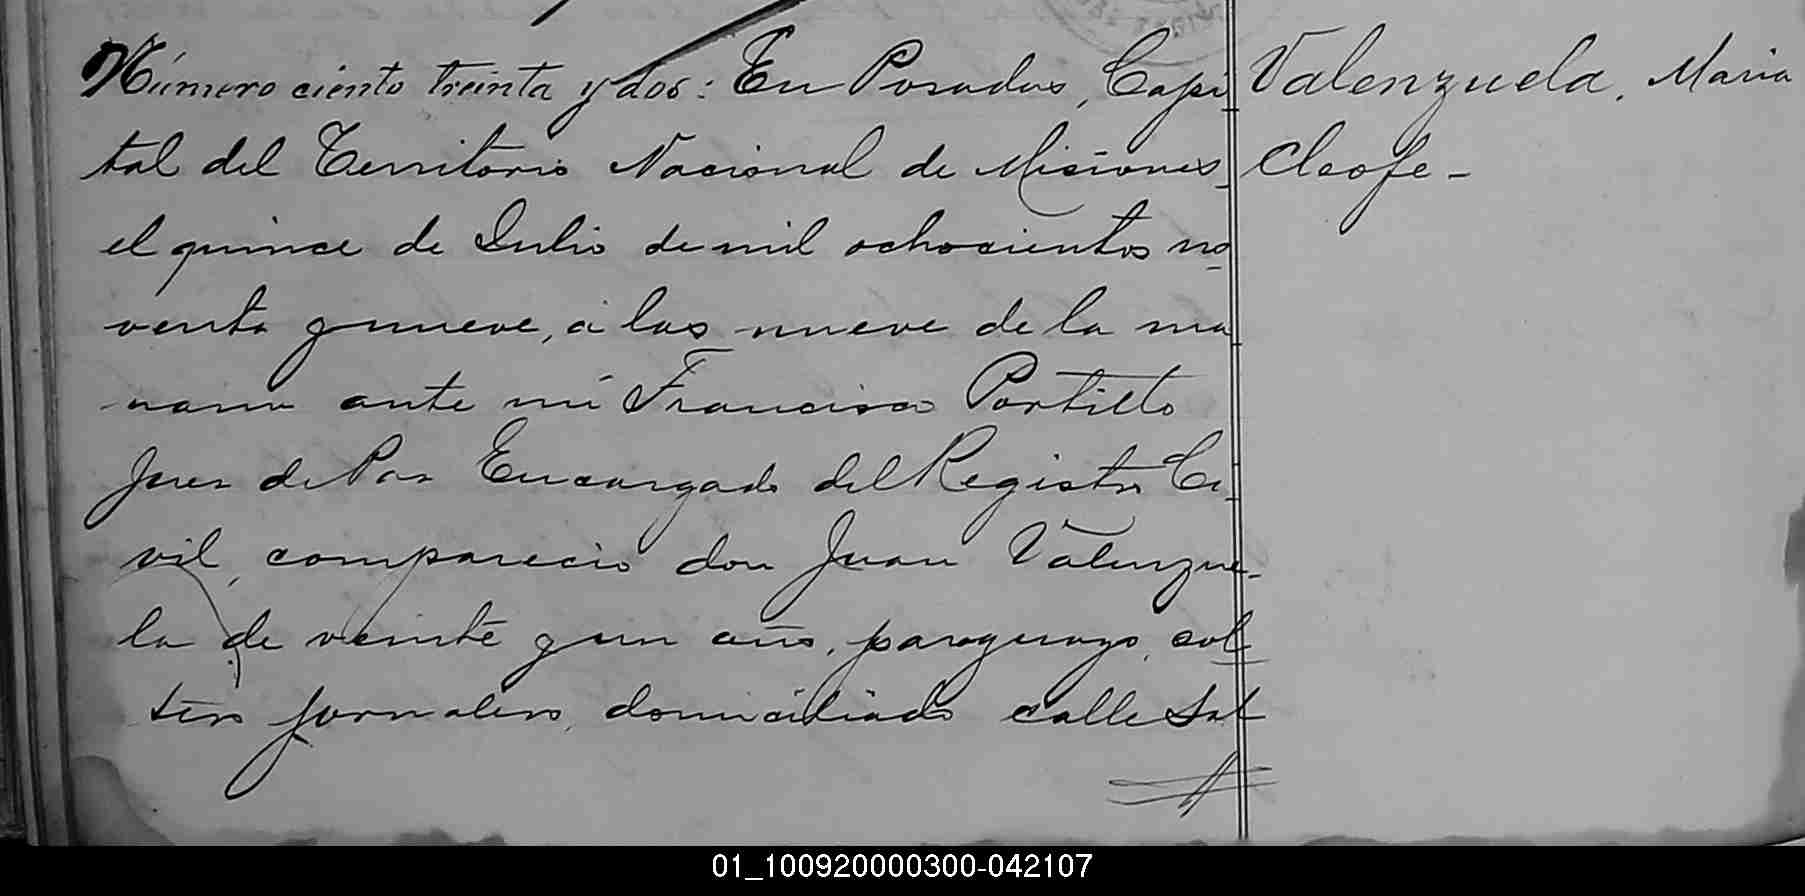 Número ciento treinta y dos: En Posadas, Capi
tal del Territorio Nacional de Misiones,
el quince de Julio de mil ochocientos no
venta y nueve, á las nueve de la ma
nana ante mí Francisco Portillo
Juez de Paz Encargado del Registro Ci
vil, comparecio don Juan Valenzue-
la de veinte y un año, paraguayo, sol
tero jornalero, domiciliado calle Sal
Valenzuela, Maria
Cleofe -
01_100920000300-042107